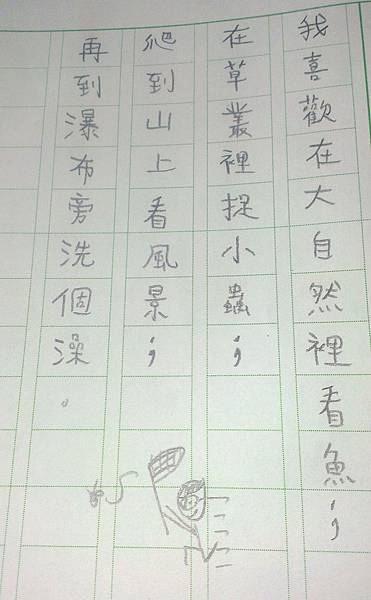 我喜歡在大自然裡看魚；
在草叢裡捉小蟲；
爬到山上看風景；
再到瀑布旁洗個澡。